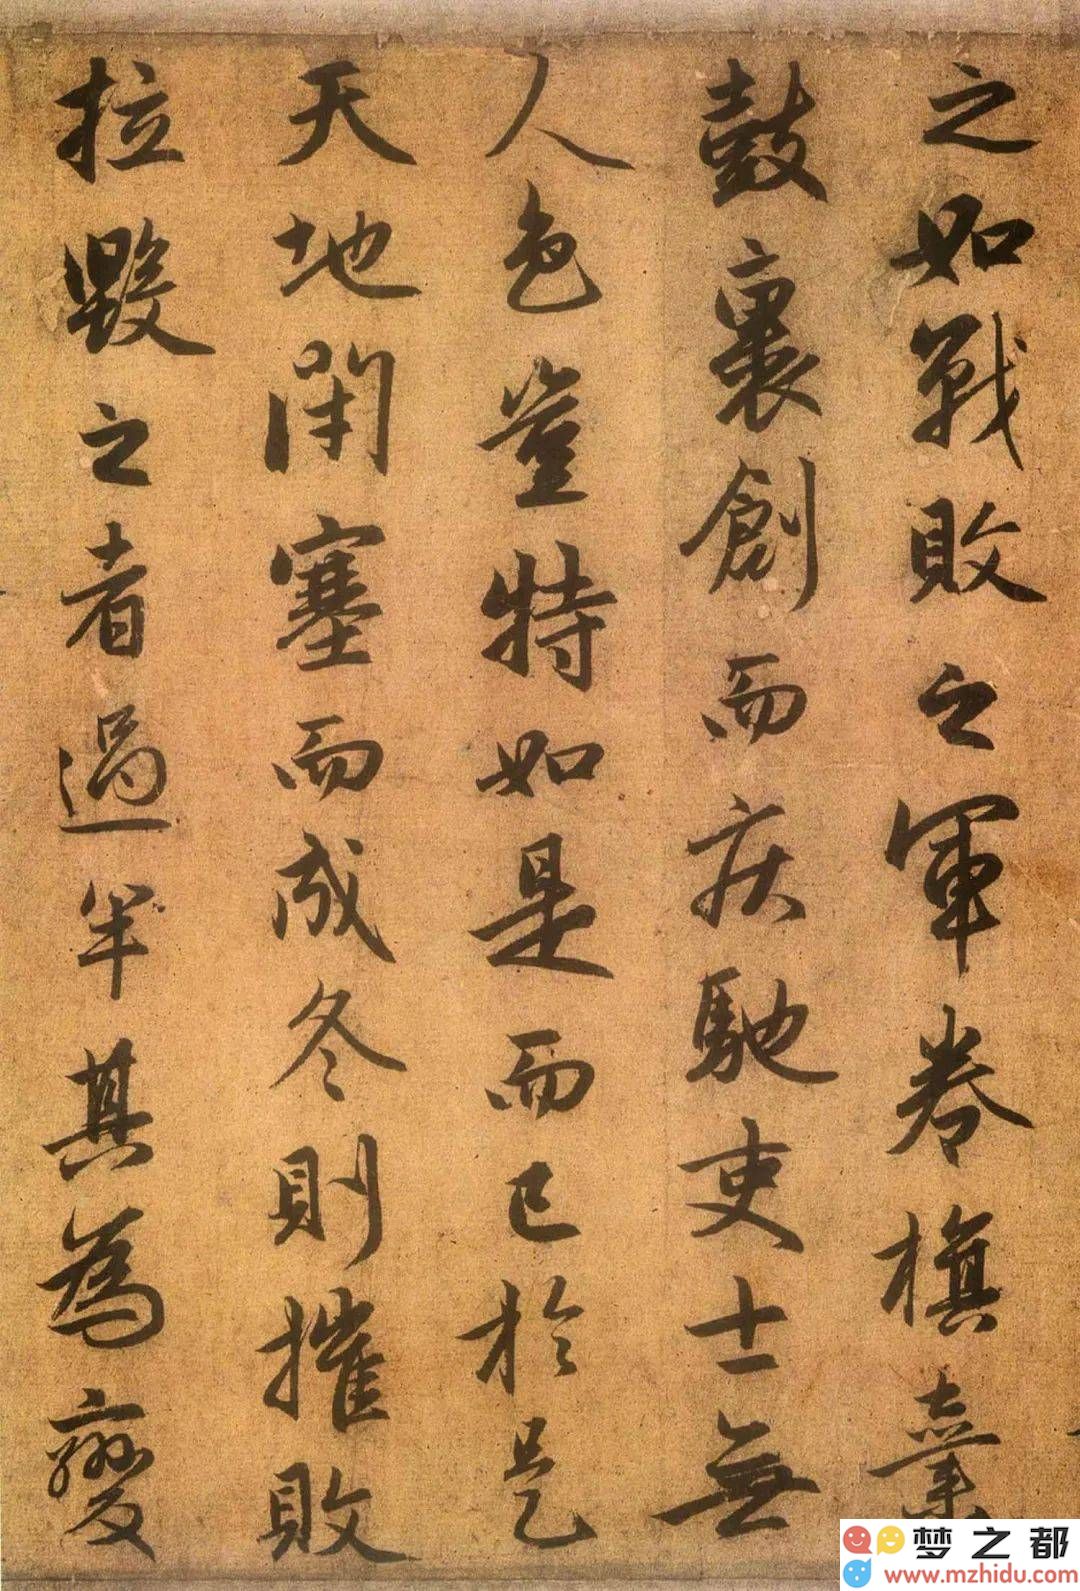 之如戰敗之軍卷旗棄
鼓裹創而疾馳吏士無
人色豈特如是而已於是
天地閉塞而成冬則摧敗
拉毀之者過半其為變
梦之都
www.mzhidu.com